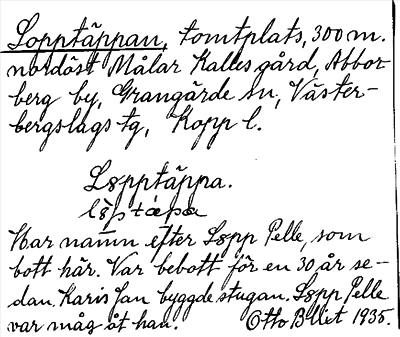 Lopptäppan, tomtplats, 300 m.
nordöst Målar Kalles gård, Abbor-
berg by, Grangärde sn, Väster-
bergslags tg, Kopp l.
Løpptäppa.
Har namn efter Løpp Pelle, som
bott här. Var bebott för en 30 år se-
dan. Karis Jan byggde stugan. Løpp Pelle
var måg åt han. Otto Blixt 1935.